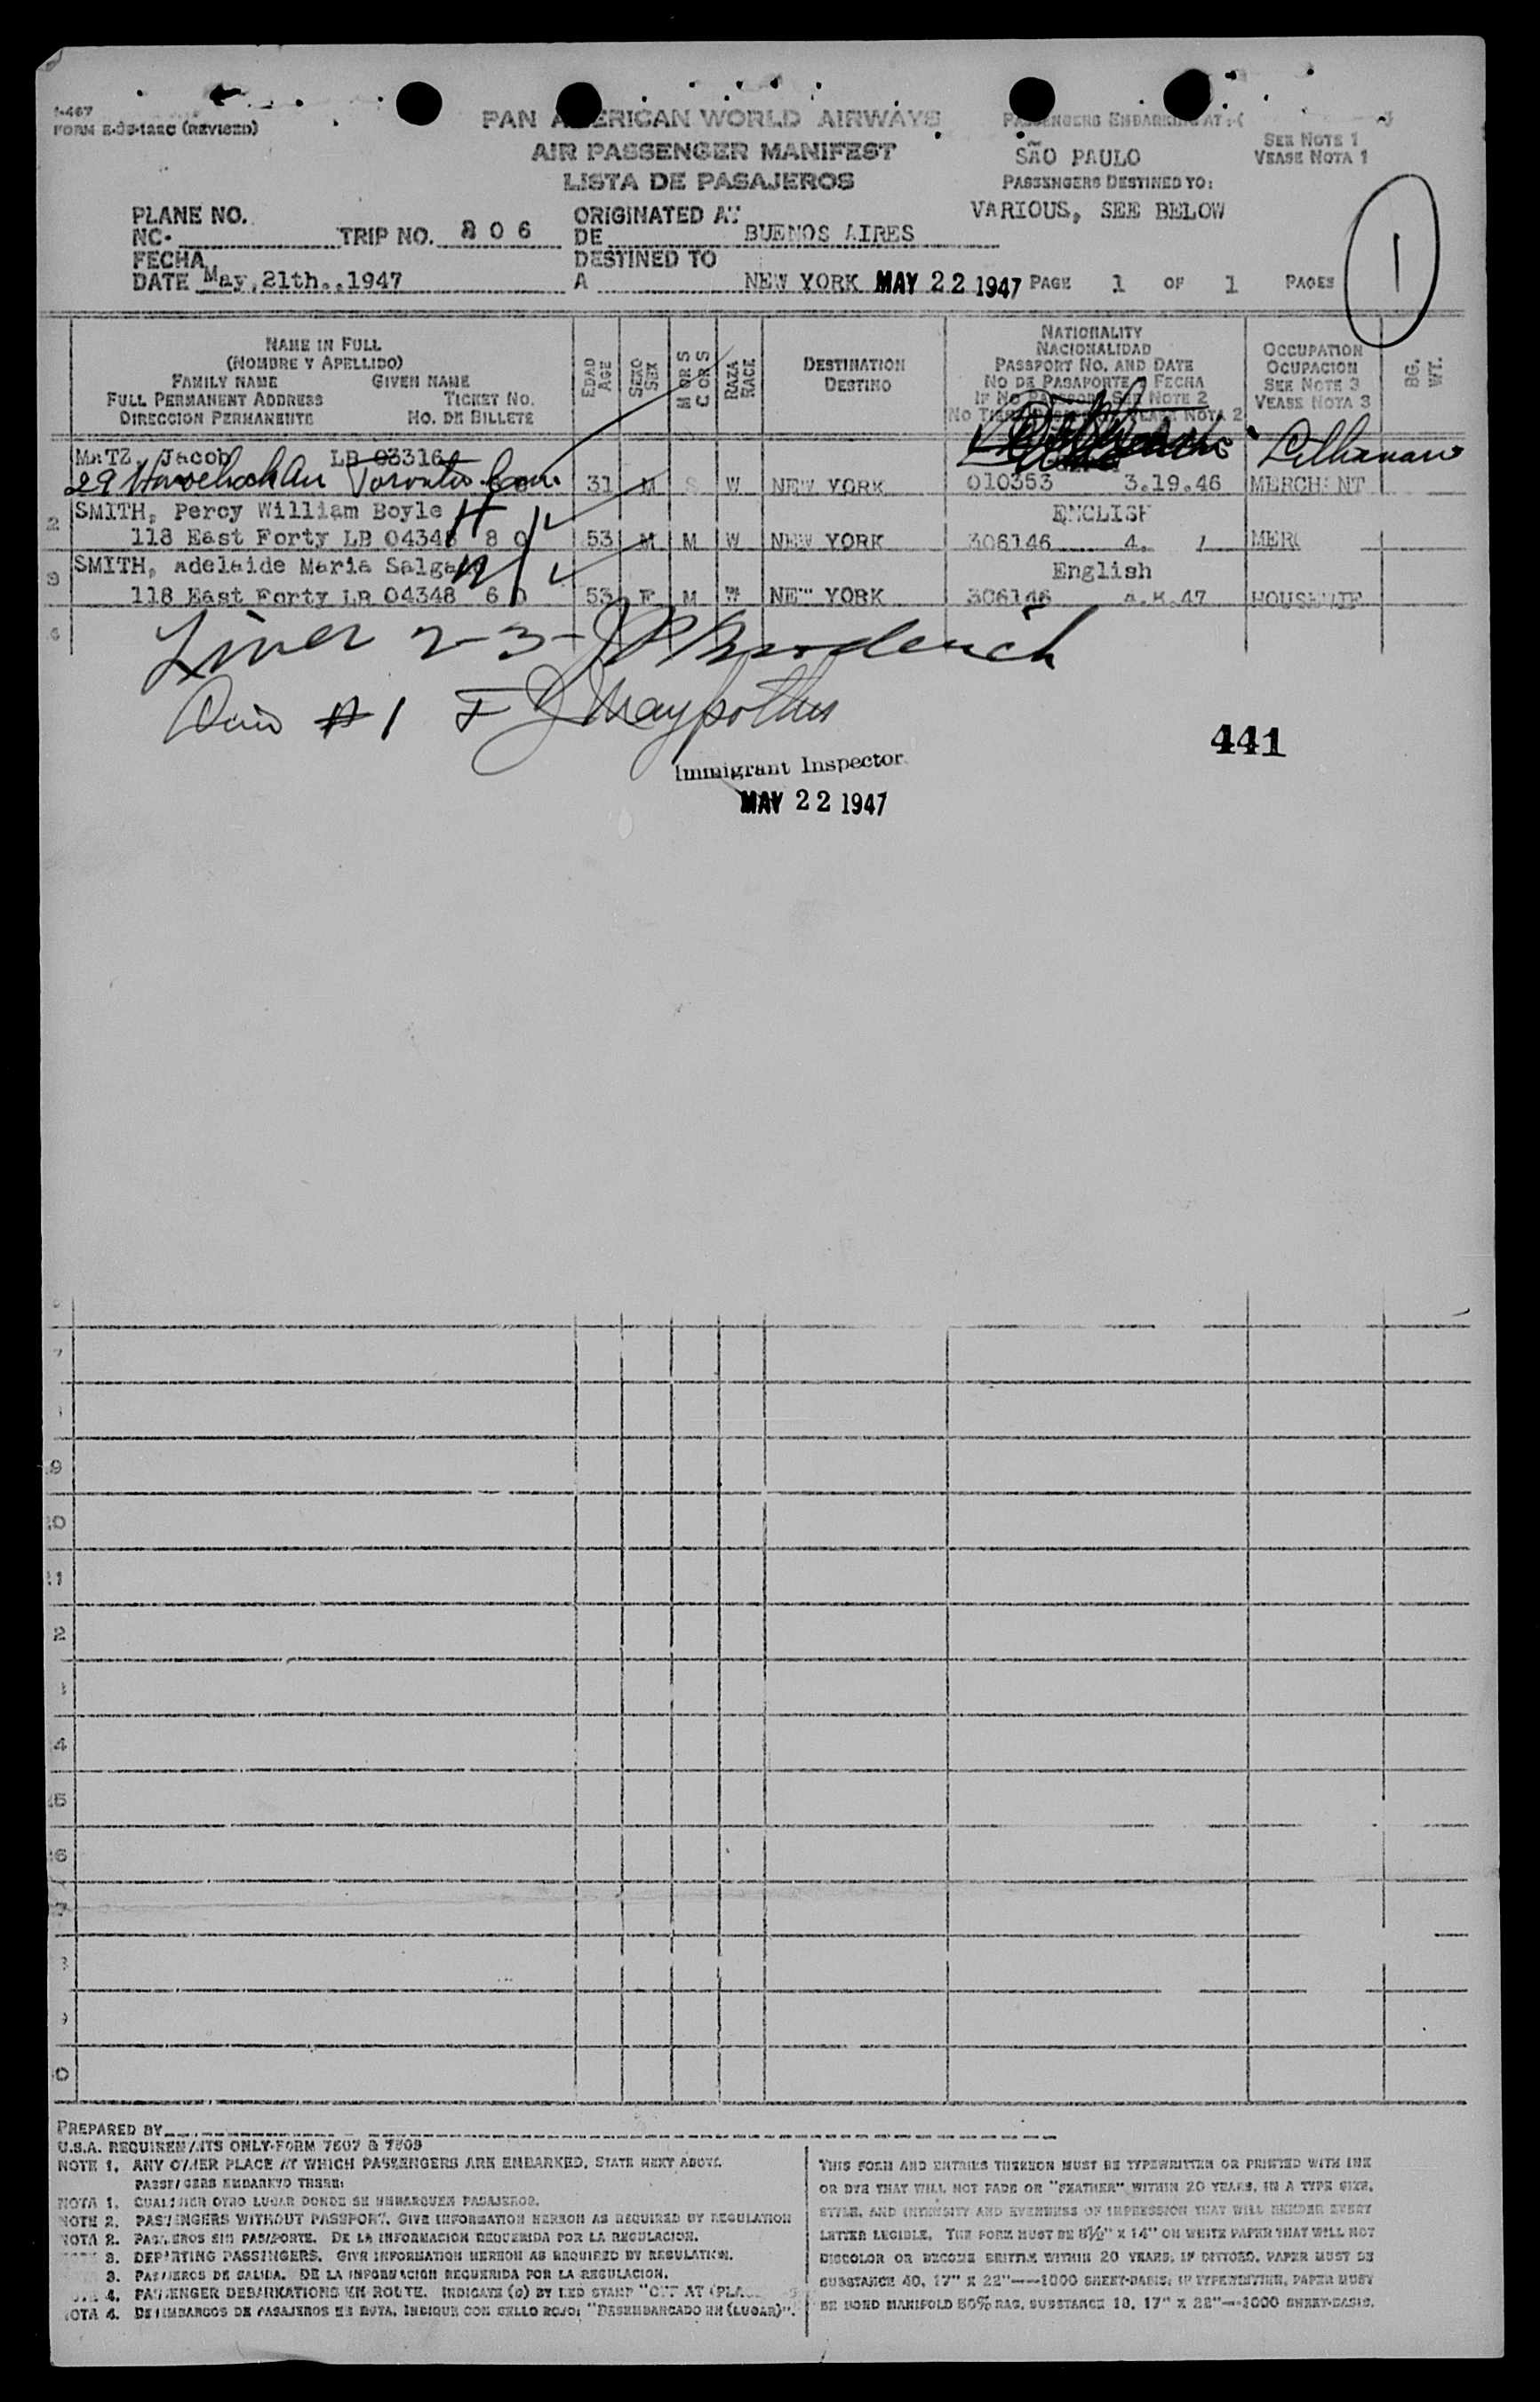 I-467
FORM E-35-122C (REVISED)
PAN AMERICAN WORLD AIRWAYS
AIR PASSENGER MANIFEST
LISTA DE PASAJEROS
PASSENGERS EMBARKING AT:
SÃO PAULO
SEE NOTE 1
VEASE NOTA 1
PASSENGERS DESTINED TO:
VARIOUS, SEE BELOW
PLANE NO.
NC- TRIP NO. 8 0 6
ORIGINATED AT
DE BUENOS AIRES
FECHA
DATE May,21th.,1947
DESTINED TO
A NEW YORK MAY 22 1947 PAGE 1 OF 1 PAGES
1
NAME IN FULL
(NOMBRE Y APELLIDO)
FAMILY NAME GIVEN NAME
FULL PERMANENT ADDRESS TICKET NO.
DIRECCION PERMANENTE NO. DE BILLETE
EDAD
AGE
SEXO
SEX
M OR S
C OR S
RAZA
RACE
DESTINATION
DESTINO
NATIONALITY
NACIONALIDAD
PASSPORT NO. AND DATE
NO DE PASAPORTE Y FECHA
IF NO PASSPORT SEE NOTE 2
OCCUPATION
OCUPACION
SEE NOTE 3
VEASE NOTA 3
BG.
WT.
MATZ, Jacob LB 03316
29 Toronto Can. 31 M S W NEW YORK 010353 3.19.46 MERCHANT
2 SMITH, Percy William Boyle ENGLISH
118 East Forty LB 04348 8 0 53 M M W NEW YORK 306146 4. MERC
3 SMITH, Adelaide Maria Salga English
118 East Forty LB 04348 6 0 53 F M W NEW YORK 306146 4.8.47 HOUSEWIFE
2-3-
#1
441
Immigrant Inspector
MAY 22 1947
7
9
2
4
PREPARED BY
U.S.A. REQUIREMENTS ONLY-FORM 7507 & 7509
NOTE 1. ANY OTHER PLACE AT WHICH PASSENGERS ARE EMBARKED, STATE NEXT ABOVE
PASSENGERS EMBARKED THERE:
NOTA 1. CUALQUIER OTRO LUGAR DONDE SE EMBARQUEN PASAJEROS.
NOTE 2. PASSENGERS WITHOUT PASSPORT. GIVE INFORMATION HEREON AS REQUIRED BY REGULATION
NOTA 2. PASAJEROS SIN PASAPORTE. DE LA INFORMACION REQUERIDA POR LA REGULACION.
3. DEPARTING PASSENGERS. GIVE INFORMATION HEREON AS REQUIRED BY REGULATION.
3. PASAJEROS DE SALIDA. DE LA INFORMACION REQUERIDA POR LA REGULACION.
4. PASSENGER DEBARKATIONS EN ROUTE. INDICATE (S) BY RED STAMP "OFF AT (PLACE)"
NOTA 4. DESEMBARCOS DE PASAJEROS EN RUTA. INDIQUE CON SELLO ROJO; "DESEMBARCADO EN (LUGAR)".
THIS FORM AND ENTRIES THEREON MUST BE TYPEWRITTEN OR PRINTED WITH INK
OR DYE THAT WILL NOT FADE OR "FEATHER" WITHIN 20 YEARS, IN A TYPE SIZE,
STYLE, AND INTENSITY AND EVENNESS OF IMPRESSION THAT WILL RENDER EVERY
LETTER LEGIBLE. THE FORM MUST BE 8½" X 14" ON WHITE PAPER THAT WILL NOT
DISCOLOR OR BECOME BRITTLE WITHIN 20 YEARS; IF DITTOED, PAPER MUST BE
SUBSTANCE 40, 17" X 22"—1000 SHEET-BASIS; IF TYPEWRITTEN, PAPER MUST
BE BOND MANIFOLD 50% RAG, SUBSTANCE 18, 17" X 22"—1000 SHEET-BASIS.